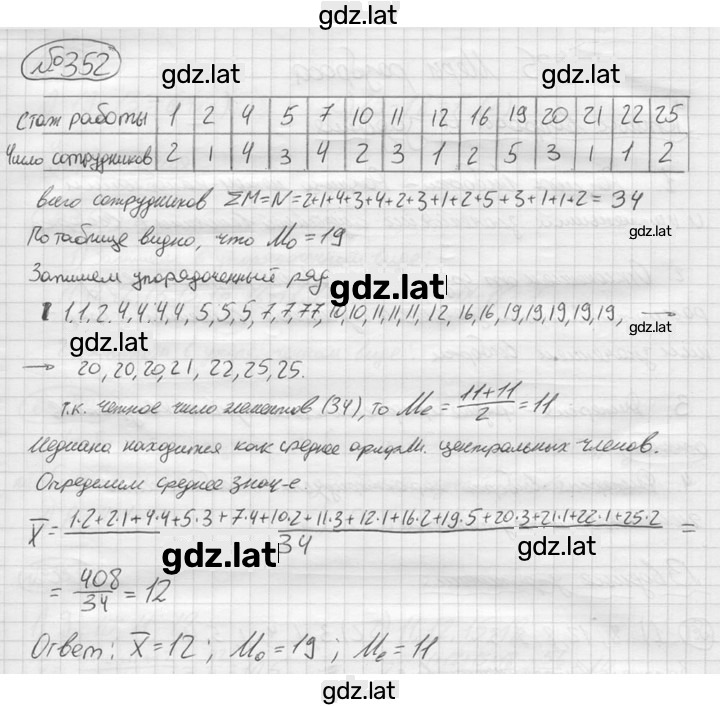 gdz.lat
№352
gdz.lat gdz.lat
Стаж работы 1 2 4 5 7 10 11 12 16 19 20 21 22 25
Число сотрудников 2 1 4 3 4 2 3 1 2 5 3 1 1 2
всего сотрудников ΣM=N=2+1+4+3+4+2+3+1+2+5+3+1+1+2= 34
По таблице видно, что Mo=19 gdz.lat
Запишем упорядоченный ряд
gdz.lat
1,1,2,4,4,4,4,5,5,5,7,7,7,7,10,10,11,11,11,12,16,16,19,19,19,19,19, →
gdz.lat
→ 20,20,20,21,22,25,25.
т.к. четное число элементов (34), то Me = (11+11)/2 = 11
Медиана находится как среднее арифм. центральных членов.
Определим среднее знач-е
X̅ = (1·2+2·1+4·4+5·3+7·4+10·2+11·3+12·1+16·2+19·5+20·3+21·1+22·1+25·2)/34 =
gdz.lat gdz.lat
= 408/34 = 12
Ответ: X̅=12; Mo=19; Me=11
gdz.lat